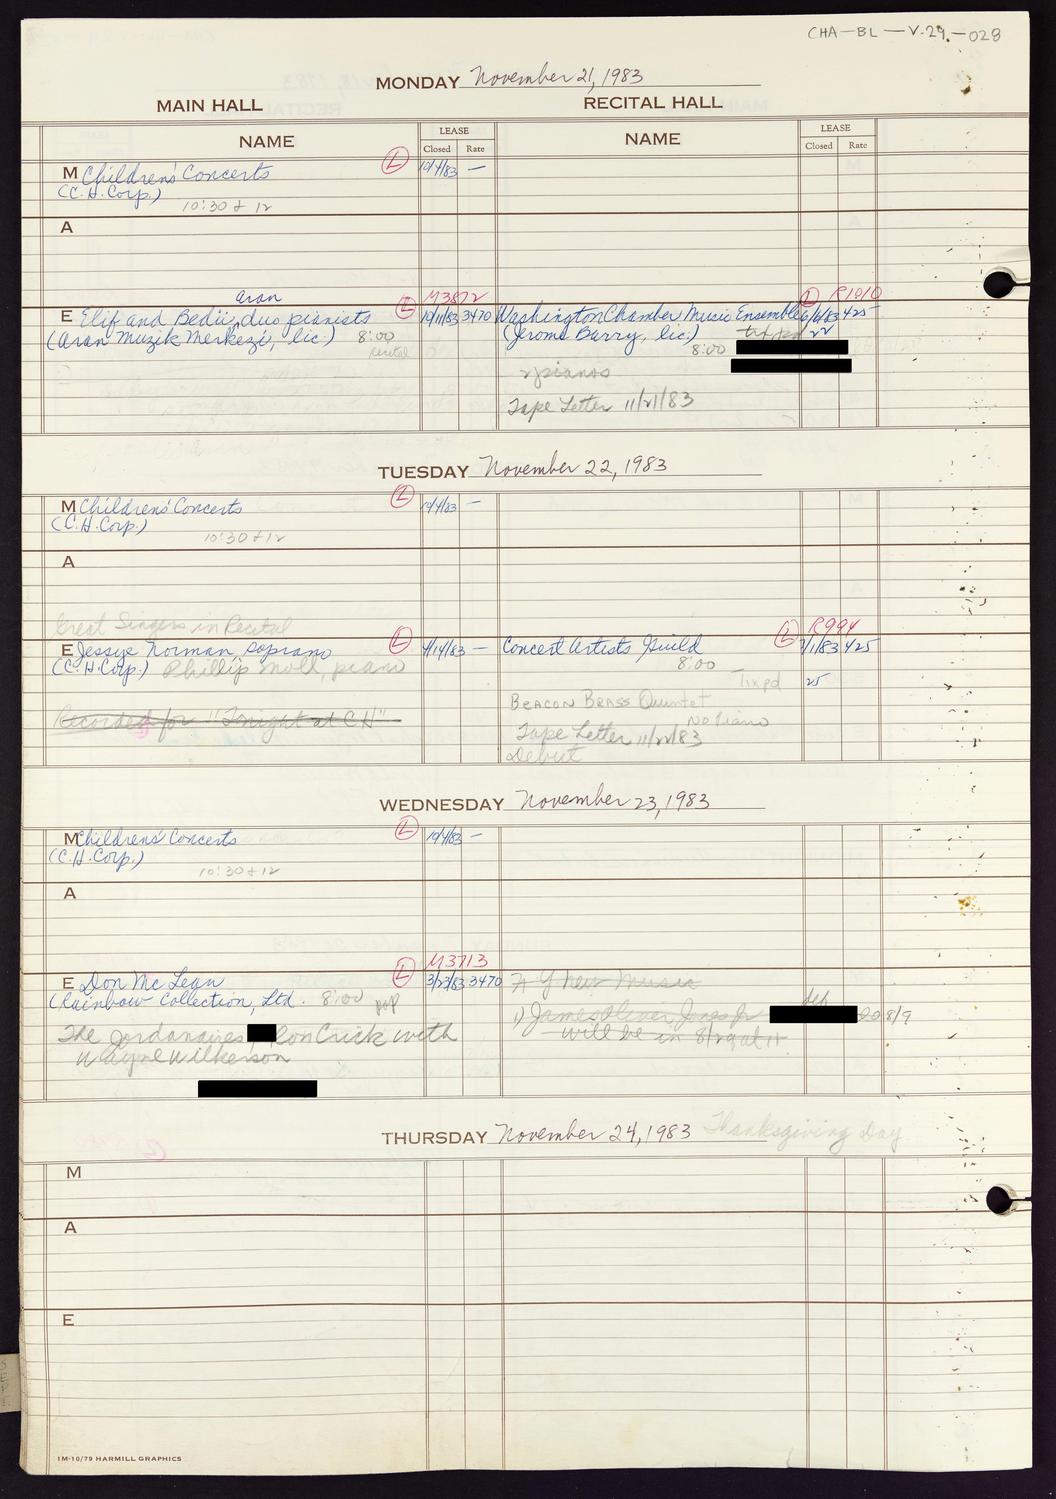 CHA-BL-V.29-028
MONDAY November 21, 1983
MAIN HALL RECITAL HALL
NAME LEASE Closed Rate NAME LEASE Closed Rate
M Children's Concerts L 10/4/83 —
(C.H. Corp.)
10:30 & 12
A
Aran M3872 L R1010
E Elif and Bedii, duo pianists L 10/11/83 3470 Washington Chamber Music Ensemble 6/6/83 425
(Aran Muzik Merkezi, lic.) 8:00 (Jerome Barry, lic.) 22
recital 8:00
2 pianos
Tape Letter 11/21/83
TUESDAY November 22, 1983
M Children's Concerts L 10/4/83 —
(C.H. Corp.)
10:30 & 12
A
Great Singers in Recital R994
E Jessye Norman, soprano L 4/14/83 — Concert Artists Guild L 7/1/83 425
(C.H. Corp.) Phillip Moll, piano 8:00
Tix pd 25
Beacon Brass Quintet
Recorded for "Tonight at C H" No Piano
Tape Letter 11/22/83
Debut
WEDNESDAY November 23, 1983
M Children's Concerts L 10/4/83 —
(C.H. Corp.)
10:30 & 12
A
M3713
E Don McLean L 3/23/83 3470 N Y New Music
(Rainbow Collection, Ltd. 8:00 pop
1) James Oliver Jones Jr 8/9
The Jordanaires Ron Crick with will be in
Wayne Wilkerson
THURSDAY November 24, 1983 Thanksgiving Day
M
A
E
1M-10/79 HARMILL GRAPHICS